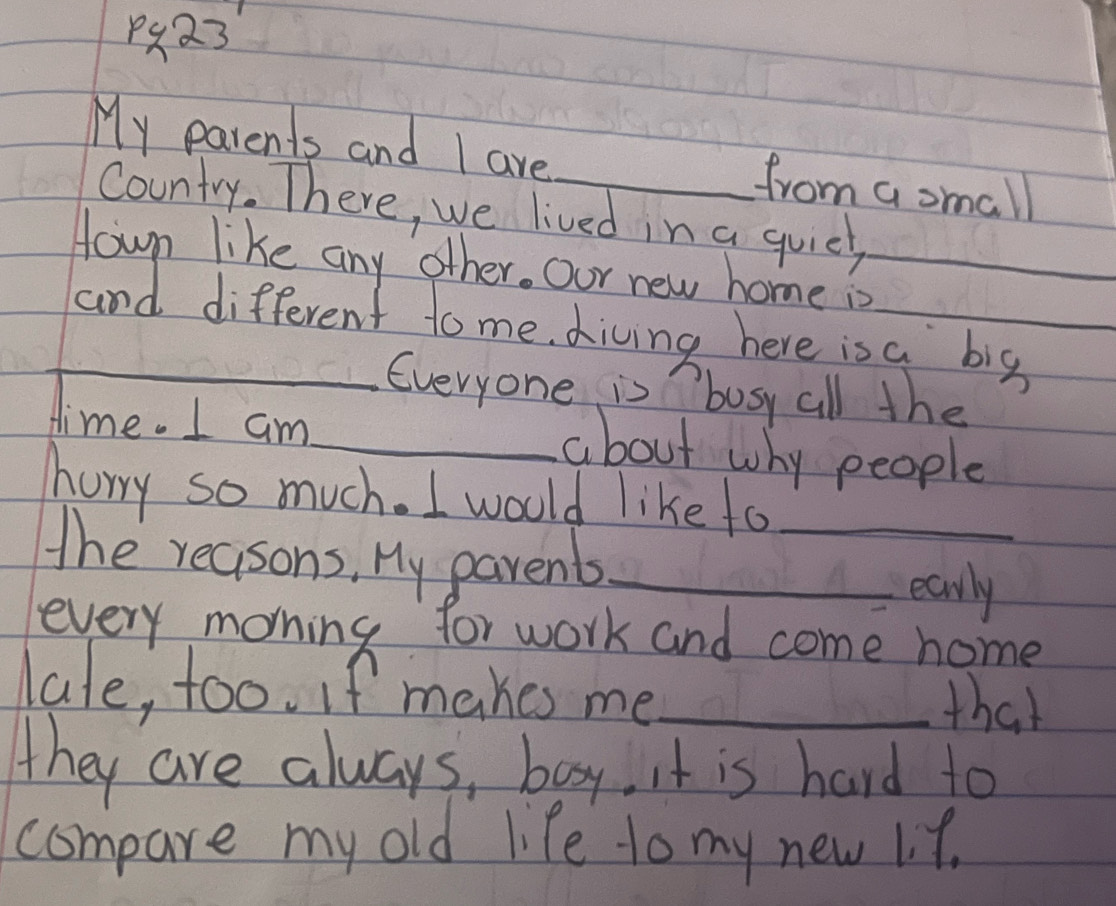 Pg23
My parents and I are__________from a small
Country. There, we lived in a quiet,__________
town like any other. Our new home is__________
and different to me. Living here is a big
__________. Everyone is busy all the
time. I am__________about why people
hurry so much. I would like to__________
the reasons. My parents__________early
every morning for work and come home
late, too. it makes me__________that
they are always, busy. it is hard to
compare my old life to my new lif.